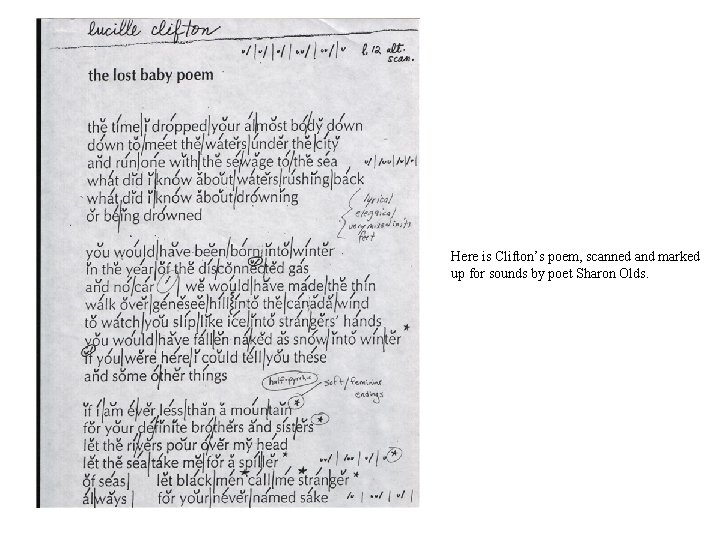 lucille clifton
l. 12 alt.
scan.
the lost baby poem
the time i dropped your almost body down
down to meet the waters under the city
and run one with the sewage to the sea
what did i know about waters rushing back
what did i know about drowning
or being drowned
lyrical
elegaical
very mixed in its
feet
you would have been born into winter
in the year of the disconnected gas
and no car we would have made the thin
walk over genesee hill into the canada wind
to watch you slip like ice into strangers’ hands
you would have fallen naked as snow into winter *
if you were here i could tell you these
and some other things
half-pyrrhic
soft/feminine
endings
if i am ever less than a mountain *
for your definite brothers and sisters *
let the rivers pour over my head
let the sea take me for a spiller * *
of seas let black men call me stranger *
always for your never named sake
Here is Clifton’s poem, scanned and marked
up for sounds by poet Sharon Olds.